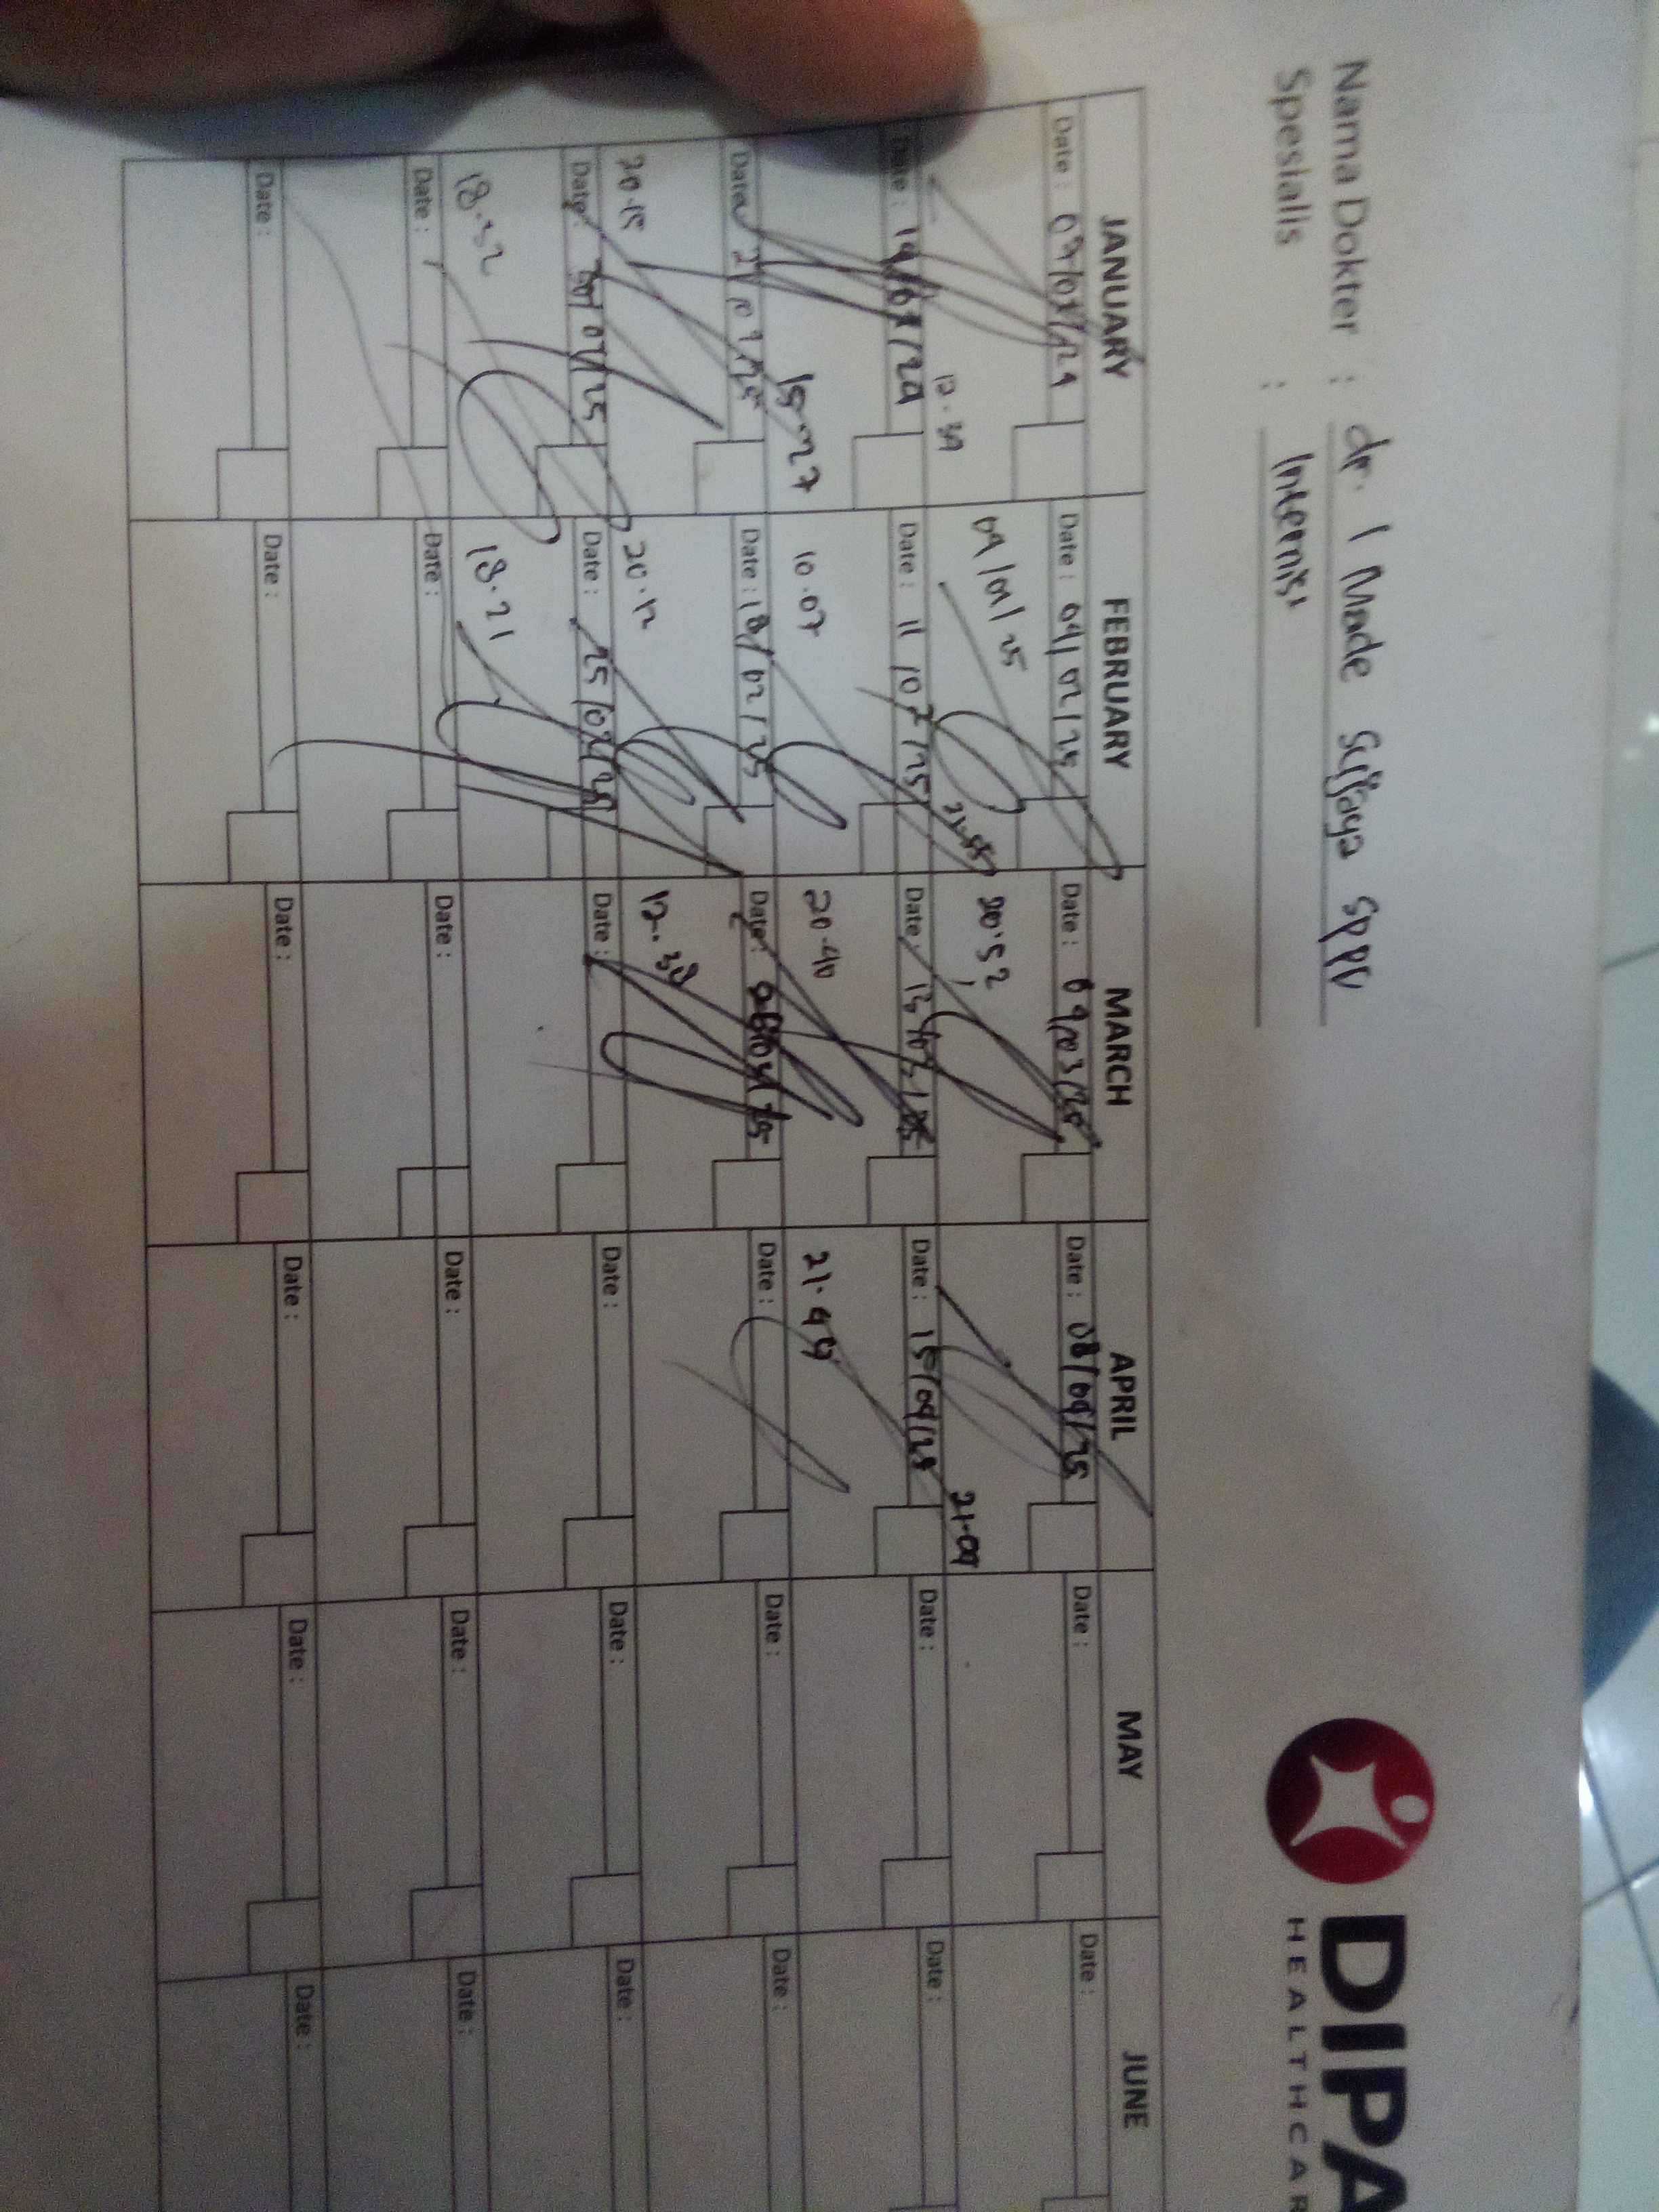 DIPA
HEALTHCAR
Nama Dokter : dr. I Made Sujaya SpPD
Spesialis : Internist
JANUARY FEBRUARY MARCH APRIL MAY JUNE
Date : Date : 04/02/25 Date : 04/03/25 Date : 08/04/25 Date : Date :
12.39 04/01/25 20.52 21.09
Date : Date : 11/02/25 Date : 13/03/25 Date : 15/04/25 Date : Date :
15.27 10.07 20.40 21.49
Date Date : 18/02/25 Date : Date : Date : Date :
20.15 20.12 12.38
Date : 30/01/25 Date : 25/02/25 Date : Date : Date : Date :
18.32 18.21
Date : Date : Date : Date : Date : Date :
Date : Date : Date : Date : Date : Date :